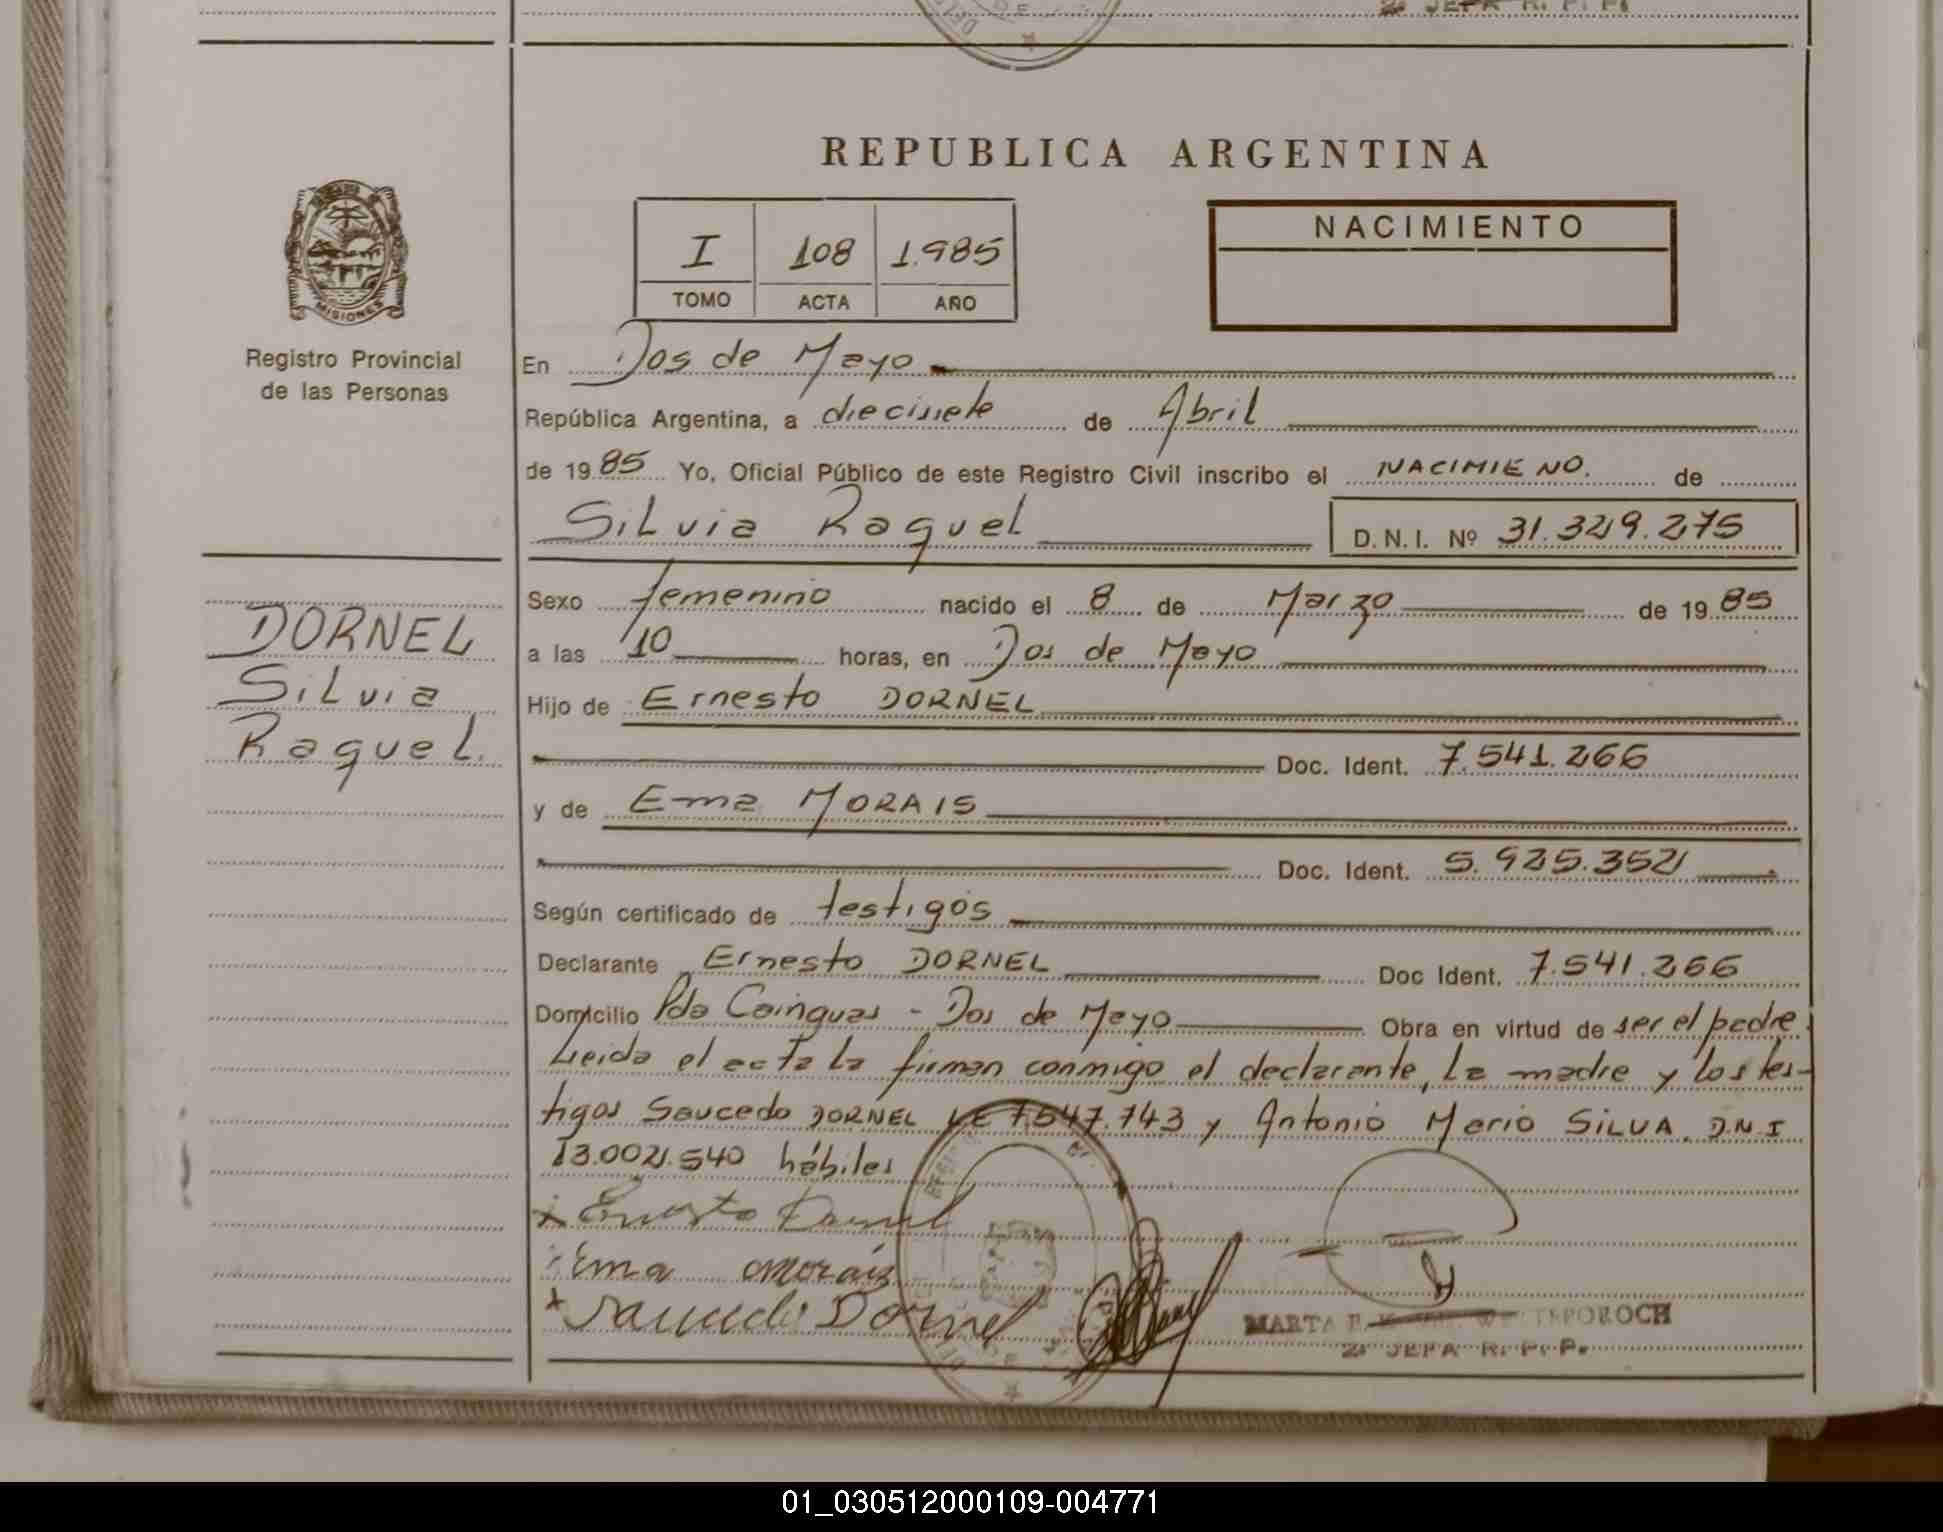 2. JEFA R. P. P.
REPUBLICA ARGENTINA
NACIMIENTO
I 108 1.985
TOMO ACTA AÑO
MISIONES
Registro Provincial
de las Personas
En Dos de Mayo
República Argentina, a diecisiete de Abril
de 1985 Yo, Oficial Público de este Registro Civil inscribo el NACIMIENO. de
Silvia Raquel D.N.I. Nº 31.329.275
DORNEL
Silvia
Raquel.
Sexo femenino nacido el 8 de Marzo de 1985
a las 10 horas, en Dos de Mayo
Hijo de Ernesto DORNEL
Doc. Ident. 7.541.266
y de Ema MORAIS
Doc. Ident. 5.925.352
Según certificado de testigos
Declarante Ernesto DORNEL Doc Ident. 7.541.266
Domicilio Pda Cainguas - Dos de Mayo Obra en virtud de ser el padre.
Leida el acta la firman conmigo el declarante, la madre y los tes-
tigos Saucedo DORNEL LE 7.547.743 y Antonio Mario SILVA. D.N.I
13.002.540 hábiles
x Ernesto Dornel
Ema Morais
x Saucedo Dornel
MARTA
2. JEFA R. P. P.
01_030512000109-004771